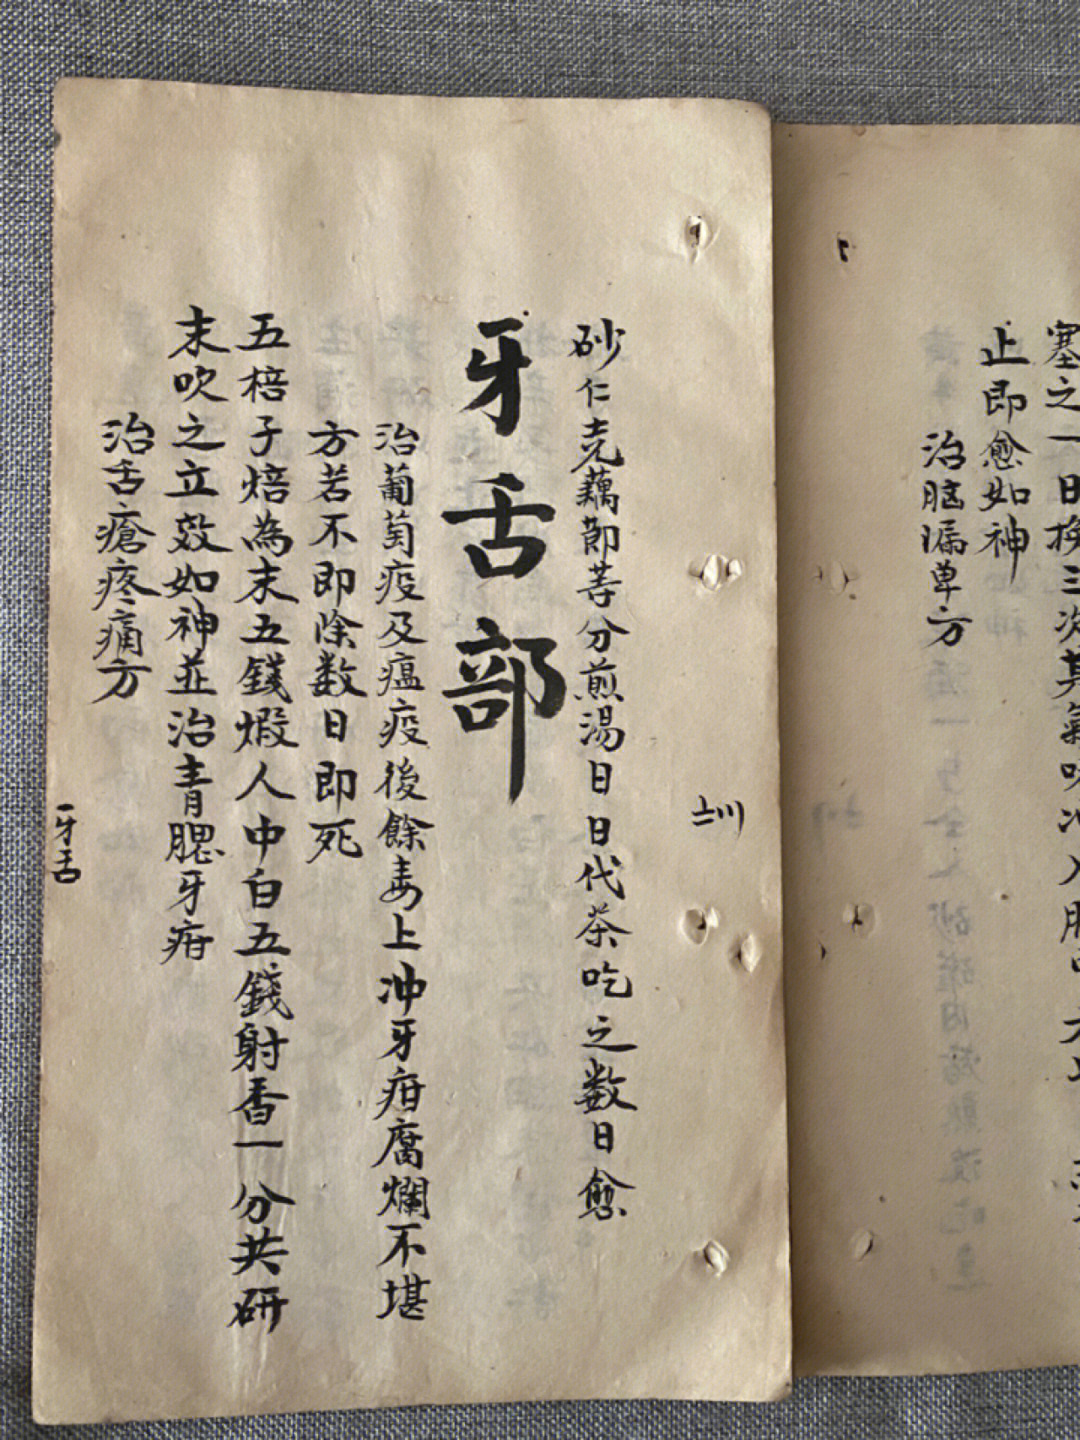 塞之一日换三次其氣味冲入腦中
止即愈如神
治脑漏单方
砂仁壳藕節等分煎湯日日代茶吃之数日愈
牙舌部
治葡萄疫及瘟疫後餘毒上冲牙疳腐爛不堪
方若不即除数日即死
五棓子焙為末五錢煅人中白五錢射香一分共研
末吹之立效如神並治青腮牙疳
治舌瘡疼痛方
牙舌